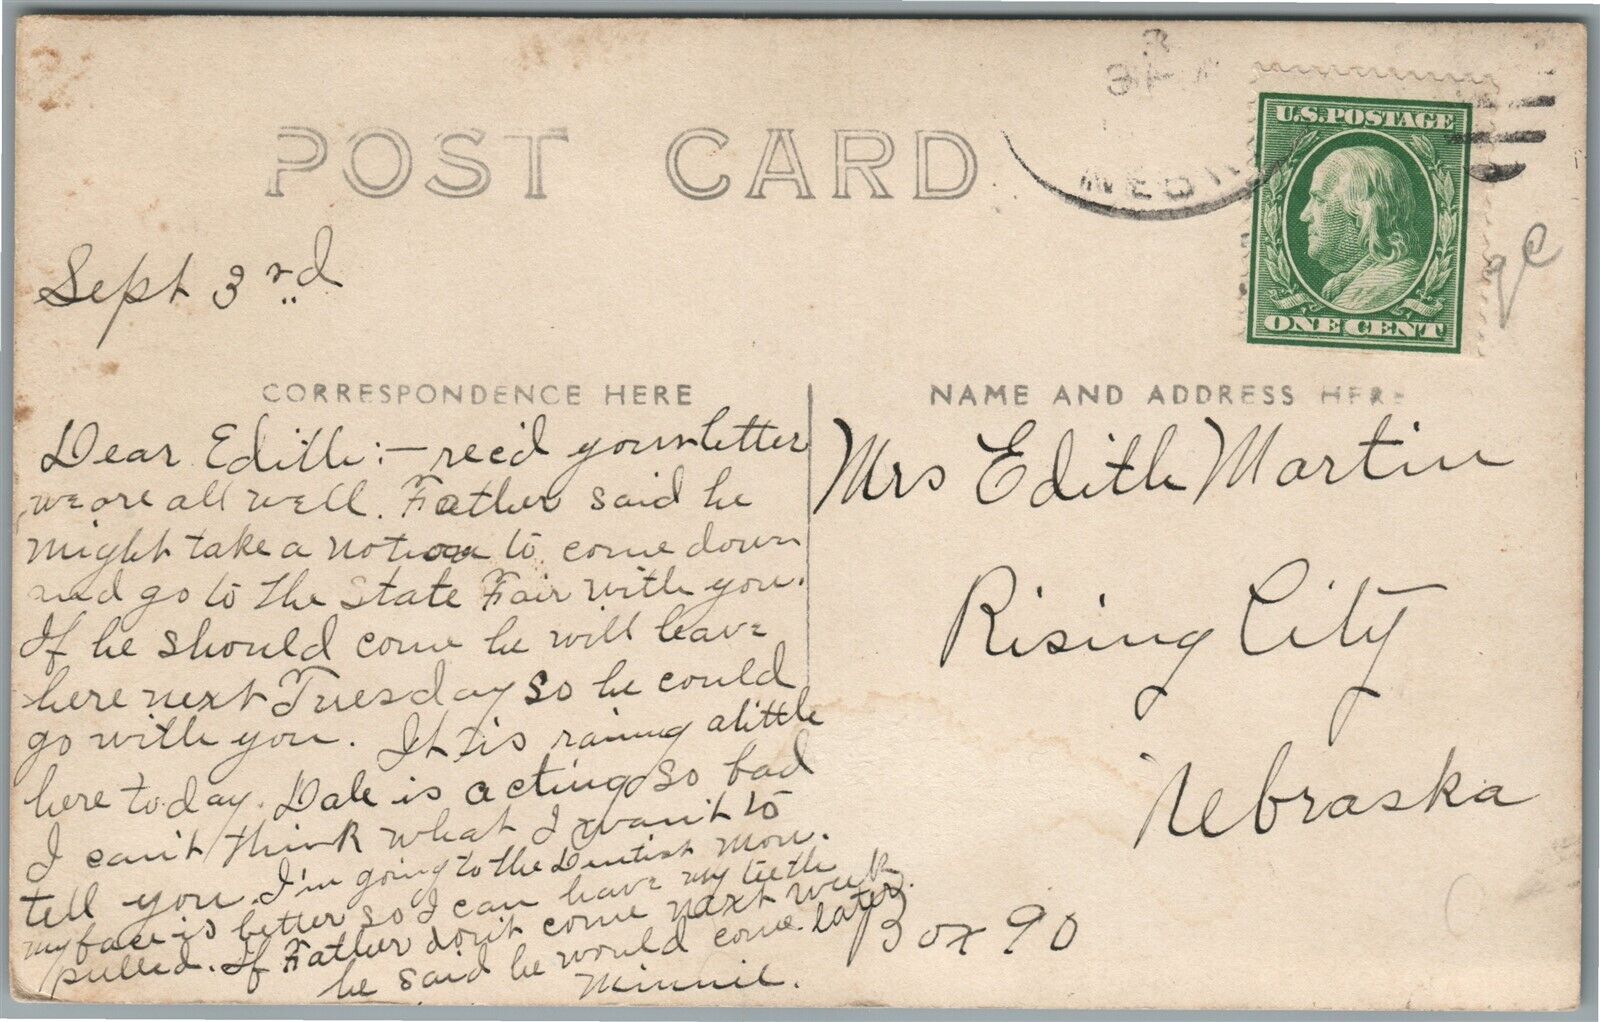 POST CARD
U.S. POSTAGE
ONE CENT
Sept 3rd
CORRESPONDENCE HERE
Dear Edith:— rec'd your letter
we are all well. Father said he
might take a notion to come down
and go to the State Fair with you.
If he should come he will leave
here next Tuesday so he could
go with you. It is raining a little
here today. Dale is acting so bad
I can't think what I want to
tell you. I'm going to the Dentist Mon.
my face is better so I can have my teeth
pulled. If Father don't come next week
he said he would come later.
Minnie.
NAME AND ADDRESS HERE
Mrs Edith Martin
Rising City
Nebraska
Box 90